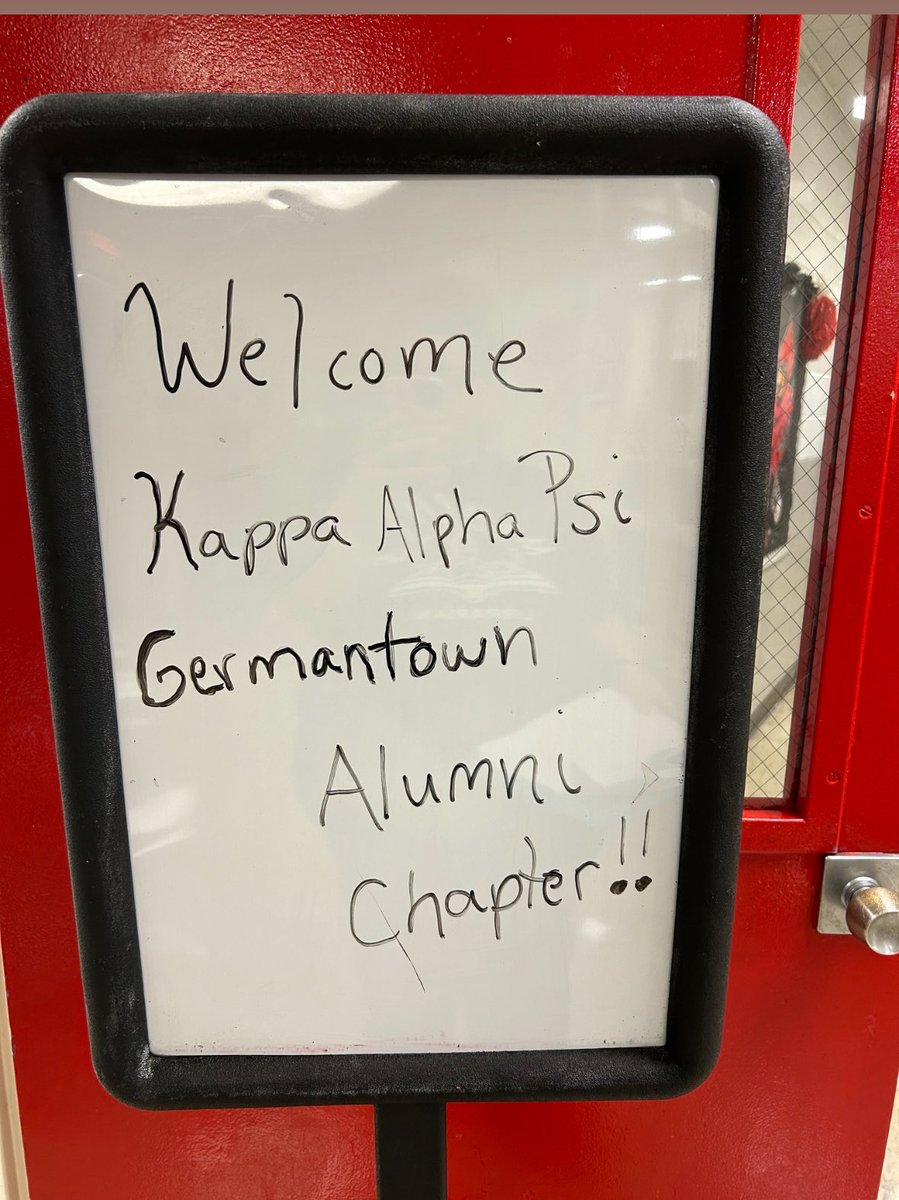 Welcome
Kappa Alpha Psi
Germantown
Alumni
Chapter!!